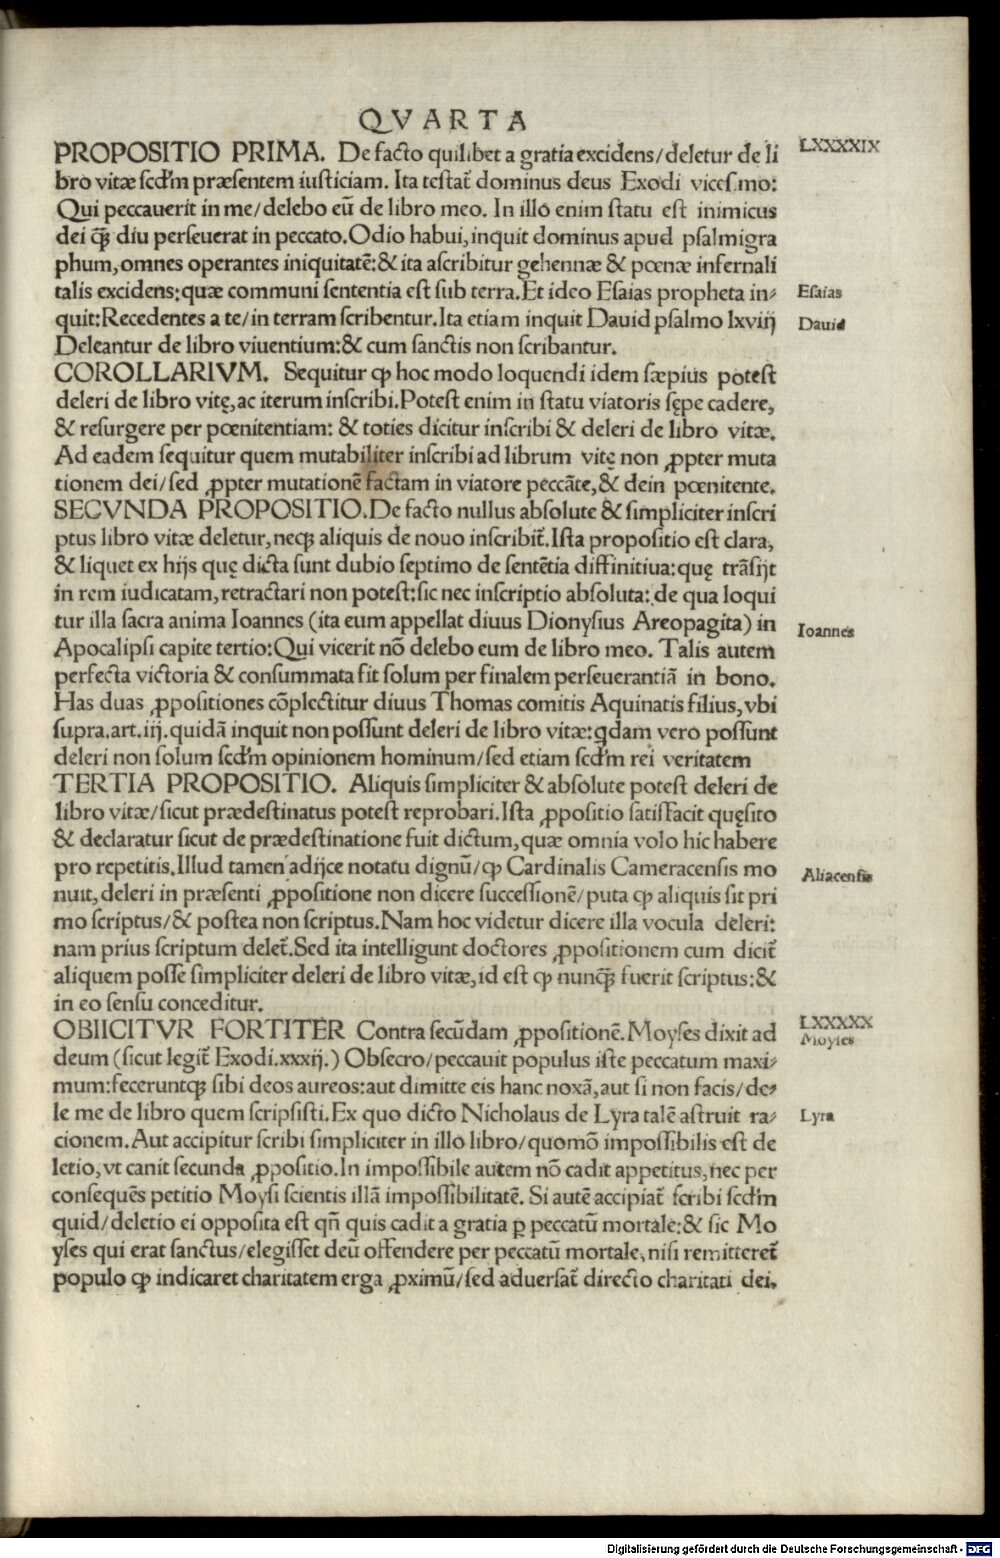 QVARTA
PROPOSITIO PRIMA. De facto quilibet a gratia excidens/deletur de li
LXXXXIX
bro vitæ ſcd'm præſentem iuſticiam. Ita teſtat̃ dominus deus Exodi viceſimo:
Qui peccauerit in me/delebo eũ de libro meo. In illo enim ſtatu eſt inimicus
dei q̃ꝫ diu perſeuerat in peccato.Odio habui,inquit dominus apud pſalmigra
phum,omnes operantes iniquitatẽ:& ita aſcribitur gehennæ & pœnæ infernali
talis excidens:quæ communi ſententia eſt ſub terra.Et ideo Eſaias propheta in⸗
Eſaias
quit:Recedentes a te/in terram ſcribentur.Ita etiam inquit Dauid pſalmo lxviij
Dauid
Deleantur de libro viuentium:& cum ſanctis non ſcribantur.
COROLLARIVM. Sequitur ꝙ hoc modo loquendi idem ſæpius poteſt
deleri de libro vitę,ac iterum inſcribi.Poteſt enim in ſtatu viatoris ſępe cadere,
& reſurgere per pœnitentiam: & toties dicitur inſcribi & deleri de libro vitæ.
Ad eadem ſequitur quem mutabiliter inſcribi ad librum vitę non ꝓpter muta
tionem dei/ſed ꝓpter mutationẽ factam in viatore peccãte,& dein pœnitente.
SECVNDA PROPOSITIO.De facto nullus abſolute & ſimpliciter inſcri
ptus libro vitæ deletur,neqꝫ aliquis de nouo inſcribit̃.Iſta propoſitio eſt clara,
& liquet ex hijs quę dicta ſunt dubio ſeptimo de ſentẽtia diffinitiua:quę trãſijt
in rem iudicatam,retractari non poteſt:ſic nec inſcriptio abſoluta:de qua loqui
tur illa ſacra anima Ioannes (ita eum appellat diuus Dionyſius Areopagita) in
Ioannes
Apocalipſi capite tertio:Qui vicerit nõ delebo eum de libro meo. Talis autem
perfecta victoria & conſummata fit ſolum per finalem perſeuerantiã in bono.
Has duas ꝓpoſitiones cõplectitur diuus Thomas comitis Aquinatis filius,vbi
ſupra.art.iij.quidã inquit non poſſunt deleri de libro vitæ:q̇dam vero poſſunt
deleri non ſolum ſcd'm opinionem hominum/ſed etiam ſcd'm rei veritatem
TERTIA PROPOSITIO. Aliquis ſimpliciter & abſolute poteſt deleri de
libro vitæ/ſicut prædeſtinatus poteſt reprobari.Iſta ꝓpoſitio ſatisfacit quęſito
& declaratur ſicut de prædeſtinatione fuit dictum,quæ omnia volo hic habere
pro repetitis.Illud tamen adijce notatu dignũ/ꝙ Cardinalis Cameracenſis mo
Aliacenſis
nuit,deleri in præſenti ꝓpoſitione non dicere ſucceſſionẽ/puta ꝙ aliquis ſit pri
mo ſcriptus/& poſtea non ſcriptus.Nam hoc videtur dicere illa vocula deleri:
nam prius ſcriptum delet̃.Sed ita intelligunt doctores ꝓpoſitionem cum dicit̃
aliquem poſſe ſimpliciter deleri de libro vitæ,id eſt ꝙ nunq̃ꝫ fuerit ſcriptus:&
in eo ſenſu conceditur.
OBIICITVR FORTITER Contra ſecũdam ꝓpoſitionẽ.Moyſes dixit ad
LXXXXX
Moyſes
deum (ſicut legit̃ Exodi.xxxij.) Obſecro/peccauit populus iſte peccatum maxi⸗
mum:feceruntqꝫ ſibi deos aureos:aut dimitte eis hanc noxã,aut ſi non facis/de⸗
le me de libro quem ſcripſiſti.Ex quo dicto Nicholaus de Lyra talẽ aſtruit ra⸗
Lyra
cionem.Aut accipitur ſcribi ſimpliciter in illo libro/quomõ impoſſibilis eſt de
letio,vt canit ſecunda ꝓpoſitio.In impoſſibile autem nõ cadit appetitus,nec per
conſequẽs petitio Moyſi ſcientis illã impoſſibilitatẽ. Si autẽ accipiat̃ ſcribi ſcd'm
quid/deletio ei oppoſita eſt qñ quis cadit a gratia ꝑ peccatũ mortale:& ſic Mo
yſes qui erat ſanctus/elegiſſet deũ offendere per peccatũ mortale,niſi remitteret̃
populo ꝙ indicaret charitatem erga ꝓximũ/ſed aduerſat̃ directo charitati dei.
Digitalisierung gefördert durch die Deutsche Forschungsgemeinschaft - DFG